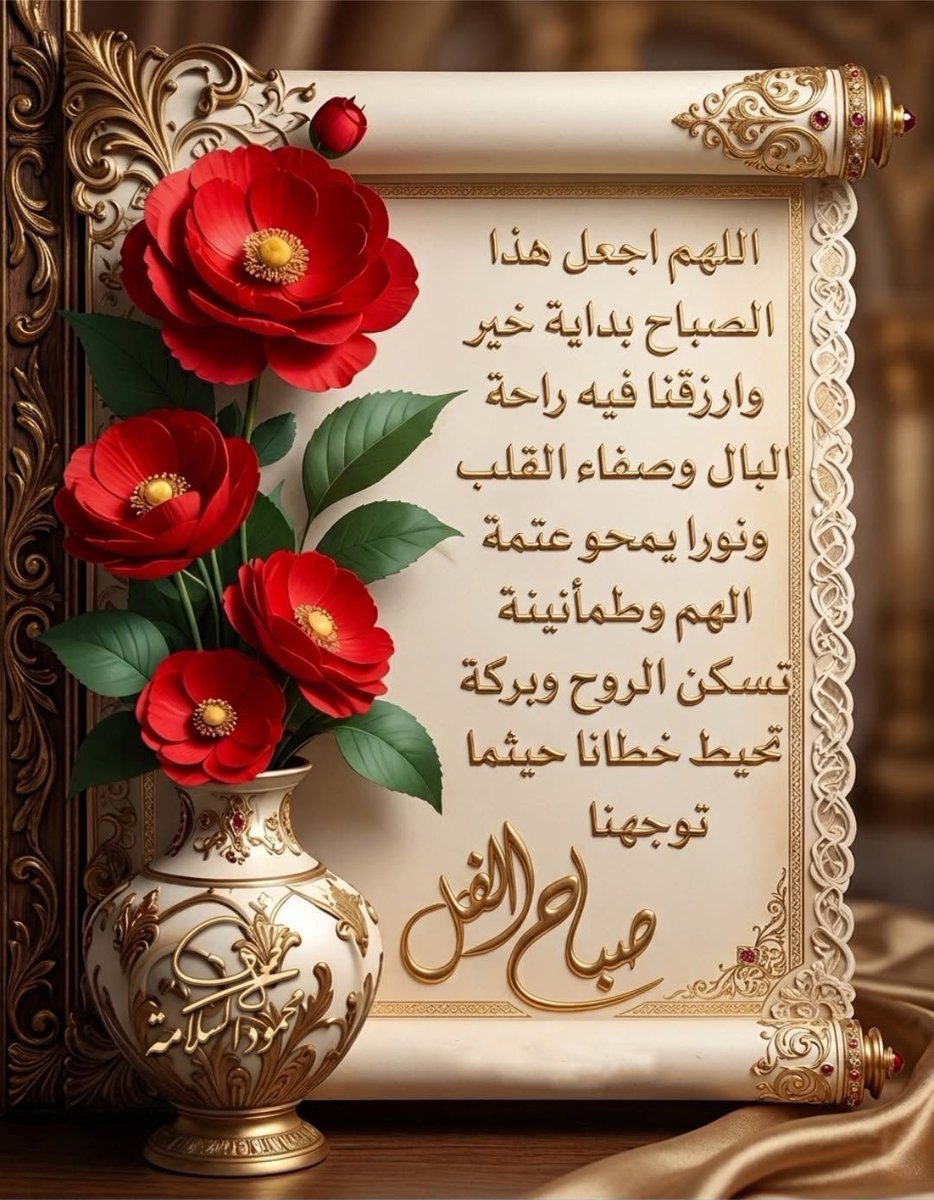 اللهم اجعل هذا
الصباح بداية خير
وارزقنا فيه راحة
البال وصفاء القلب
ونورا يمحو عتمة
الهم وطمأنينة
تسكن الروح وبركة
تحيط خطانا حيثما
توجهنا
صباح الفل
محمود السلامة